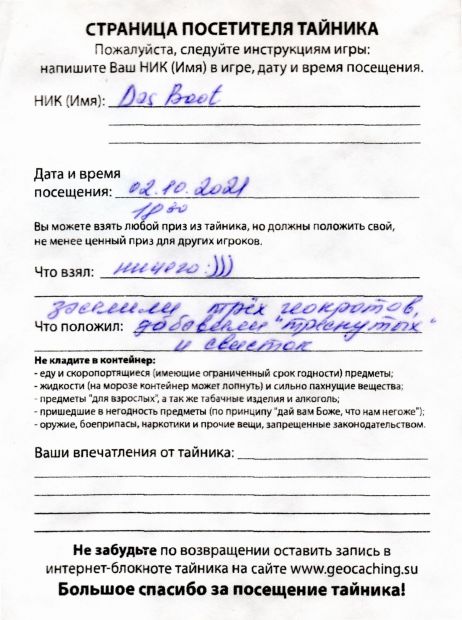 СТРАНИЦА ПОСЕТИТЕЛЯ ТАЙНИКА
Пожалуйста, следуйте инструкциям игры:
напишите Ваш НИК (Имя) в игре, дату и время посещения.
НИК (Имя): Das Boot
Дата и время
посещения: 02.10.2021
18 00
Вы можете взять любой приз из тайника, но должны положить свой,
не менее ценный приз для других игроков.
Что взял: ничего :)))
заселили трёх
Что положил: добавили "треснутых"
и свисток
Не кладите в контейнер:
- еду и скоропортящиеся (имеющие ограниченный срок годности) предметы;
- жидкости (на морозе контейнер может лопнуть) и сильно пахнущие вещества;
- предметы "для взрослых", а так же табачные изделия и алкоголь;
- пришедшие в негодность предметы (по принципу "дай вам Боже, что нам негоже");
- оружие, боеприпасы, наркотики и прочие вещи, запрещенные законодательством.
Ваши впечатления от тайника:
Не забудьте по возвращении оставить запись в
интернет-блокноте тайника на сайте www.geocaching.su
Большое спасибо за посещение тайника!